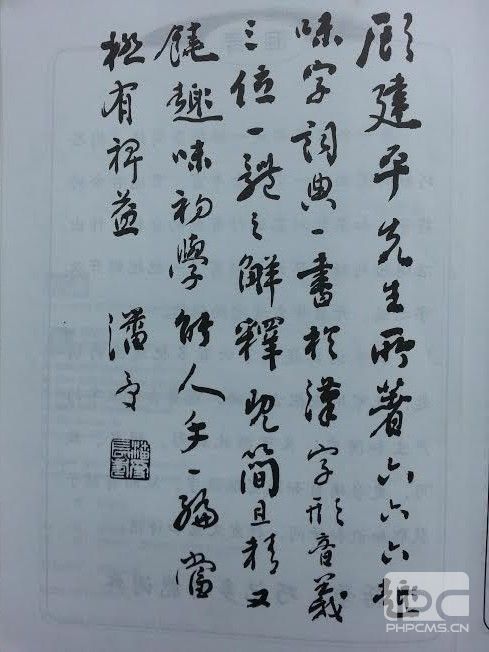 顾建平先生所著六六六趣
味字詞典一書於漢字形音義
三位一體之解釋既簡且精又
饒趣味初學能人手一編當
極有裨益
潘受
PHPCMS.CN